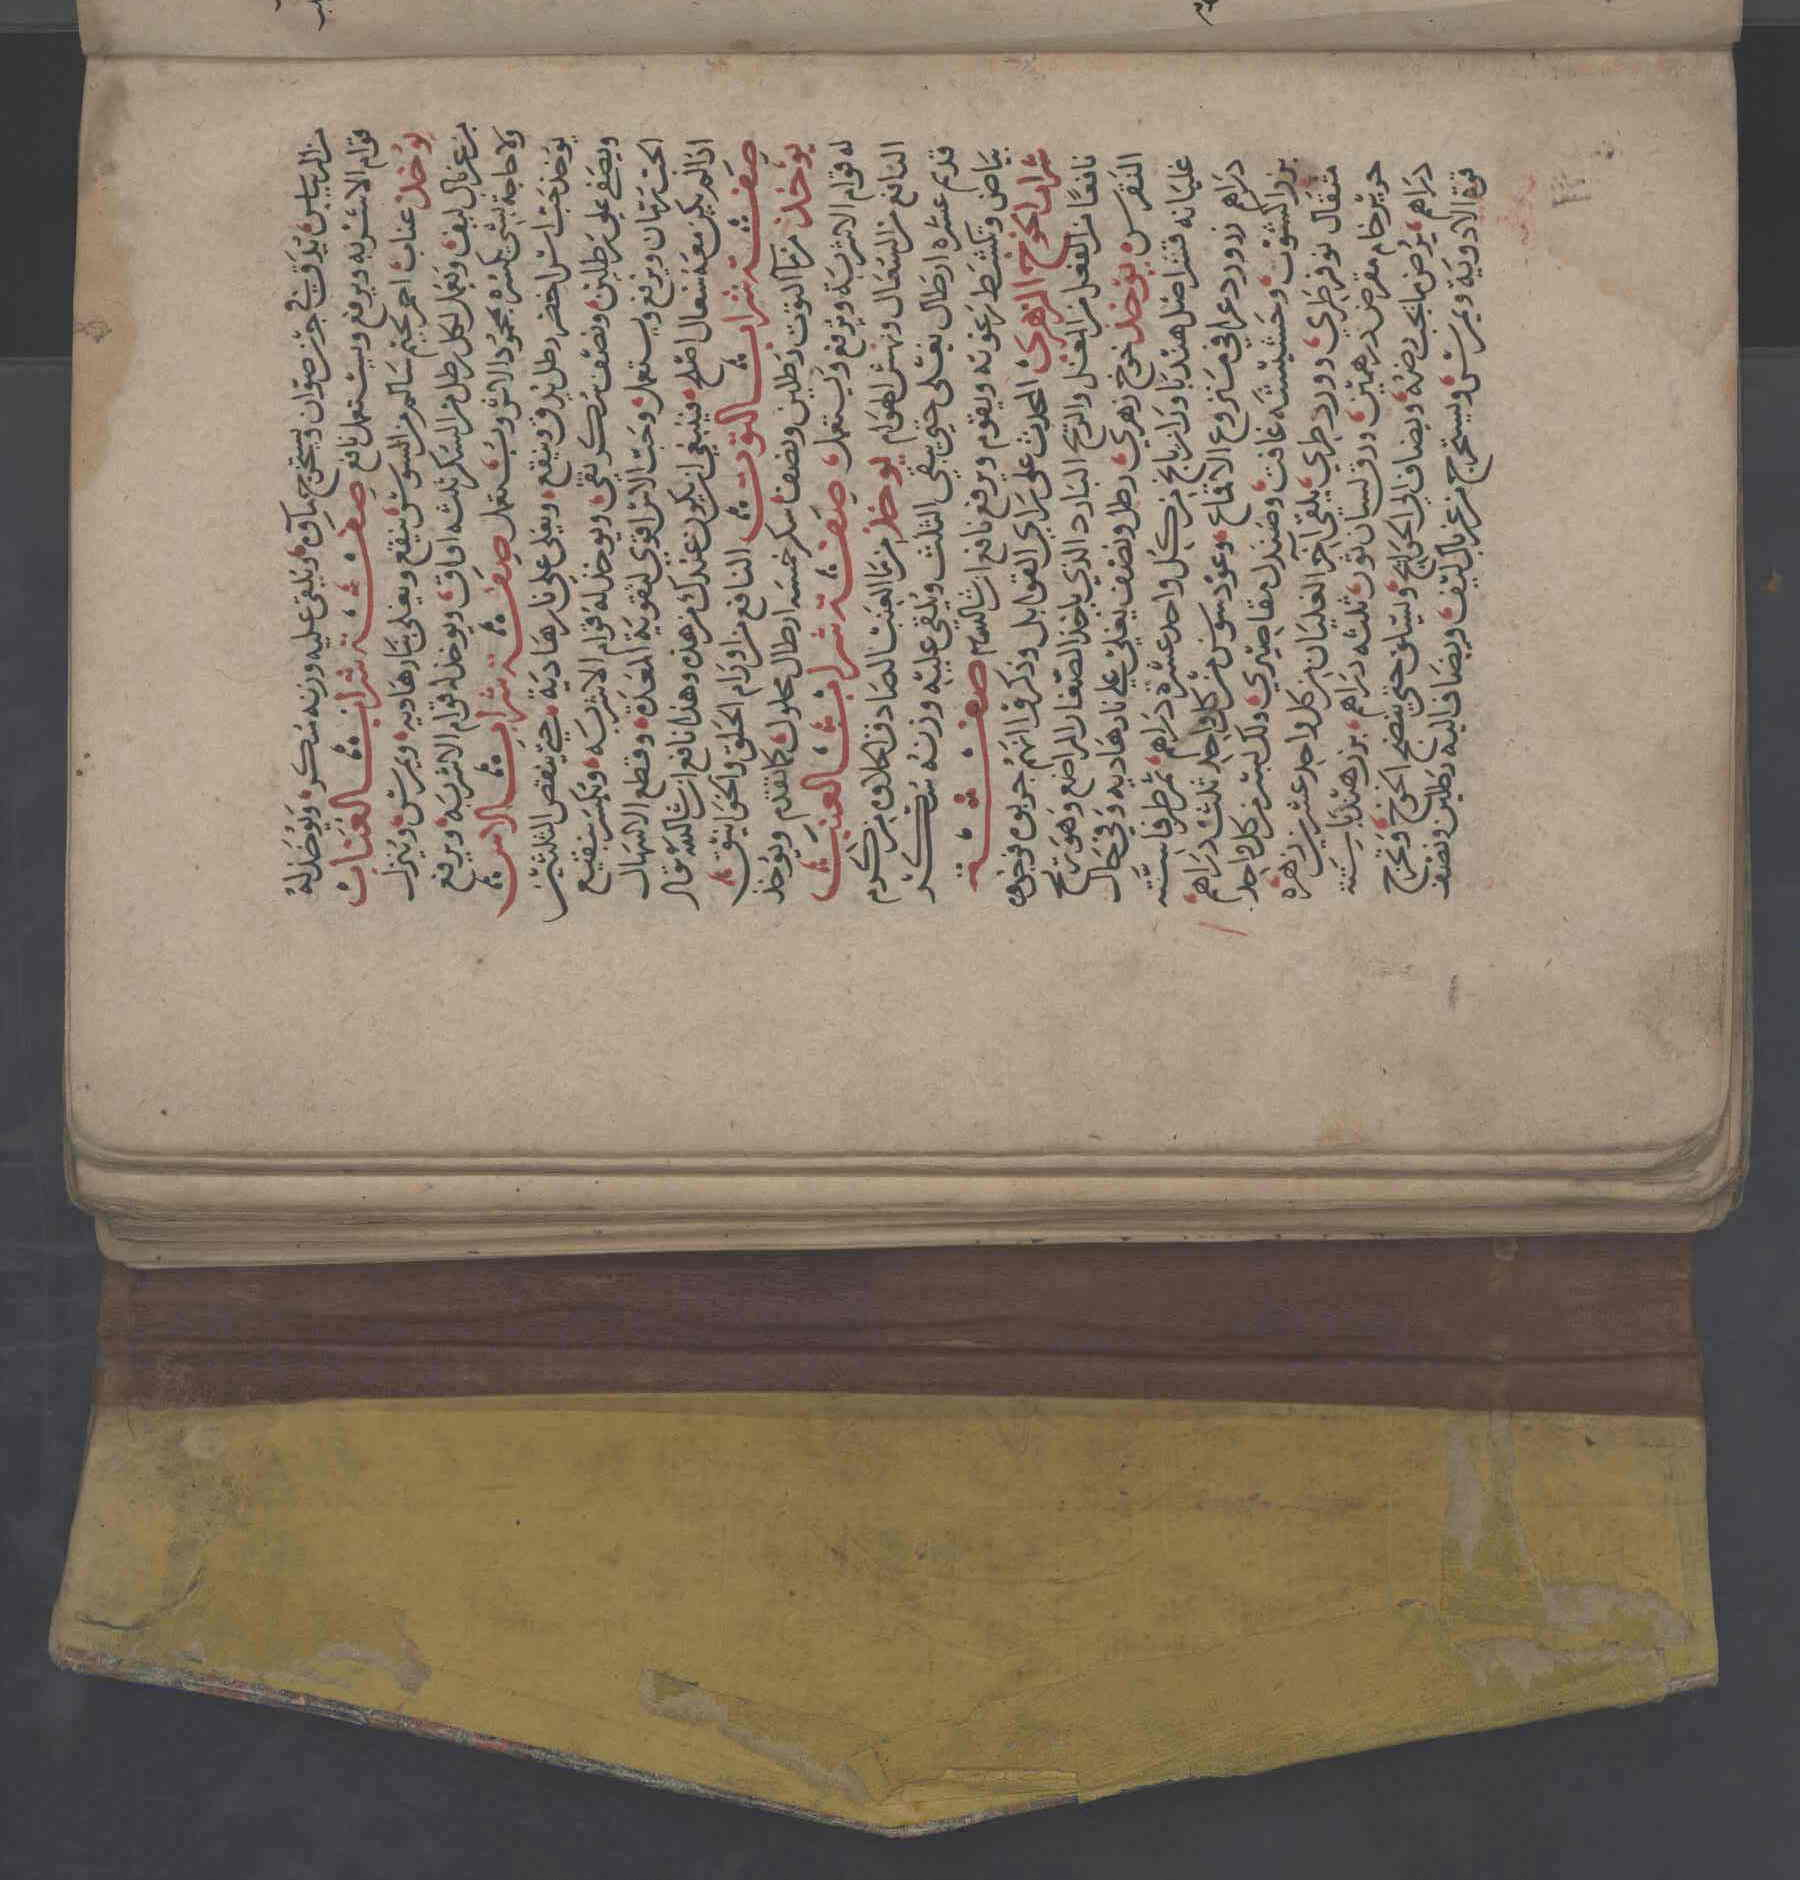 من الريباس يدق في جرن صوان ويستخرج مآؤه ويلقى عليه وزنه سكر ويؤخذ له
قوام الاشربه ويرفع ويستعمل نافع صفة شراب العناب
يؤخذ عناب احمر لحيم سالم من السوس ينقع ويغلى بنار هاديه ويمرس وينزل
من غربال ليف ويعمل لكل رطل من السكر ثلثه اواق ويؤخذ له قوام الاشربه ويرفع
ولا حاجة لشي يكسره بحموده الاشروب يستعمل صفة شراب الاس
يؤخذ حب اس اخضر رطل يدق وينقع ويغلى على نار هادية حتى ينقص الثلثين
ويصفى على رطلين ونصف سكر نقي ويؤخذ له قوام الاشربه وتكسر بنقيع
الحب رمان ويرفع ويستعمل وحب الاس اقوى لتقوية المعدة وقطع الاسهال
اذا لم يكن معه سعال اصلح فينبغي ان يكون عندك من هذه وهذا نافع ان شا الله تعالى
صفة شراب التوت النافع من اورام الحلق والخوانيق
يؤخذ من مآ التوت رطلين ونصف سكر خمسه ارطال محلول كما تقدم ويؤخذ
له قوام الاشربة ويرفع ويستعمل صفة شراب العنب
النافع من السعال ونهش الهوام يؤخذ من مآ العنب الصادق الحلاوة من كرم
قدم عشره ارطال يغلى حتى يبقى الثلث ويلقى عليه وزنه سكر
بياض وتكشط رغوته ويقوم ويرفع نافع ان شا الله صفة
شراب الخوخ الزهري المحدث على راي القوابل وذكروا انهم جربوه فوجدوه
نافعا من الفعل من المغل والريح البارد الذي ياخذ الصغار المراضع وهو ريح
النقرس يؤخذ خوخ زهري رطل ونصف يغلى على نار هاديه وفي حال
غليانه قشر اصل هندبا ورازيانج من كل واحد عشرة دراهم ثمر طرفا ستة
دراهم زر ورد عراقي منزوع الاقماع وعود سوس من كل واحد ثلث دراهم
بزر الكشوت وحشيشة غافت وصندل مقاصيري ولك بسر من كل واحد
مثقال نوفر طري وورد طري يلقى آخر الغليان من كل واحد عشرين زهرة
حرير خام مقرض درهمين ورق لسان ثور ثلثه دراهم بزر هندبا ستة
دراهم يرض ما يجب رضه ويضاف الى الحوائج ويسلق حتى ينضج الخوخ وتخرج
قوة الادوية ويمرس ويستخرج من غربال ليف ويضاف اليه رطلين ونصف